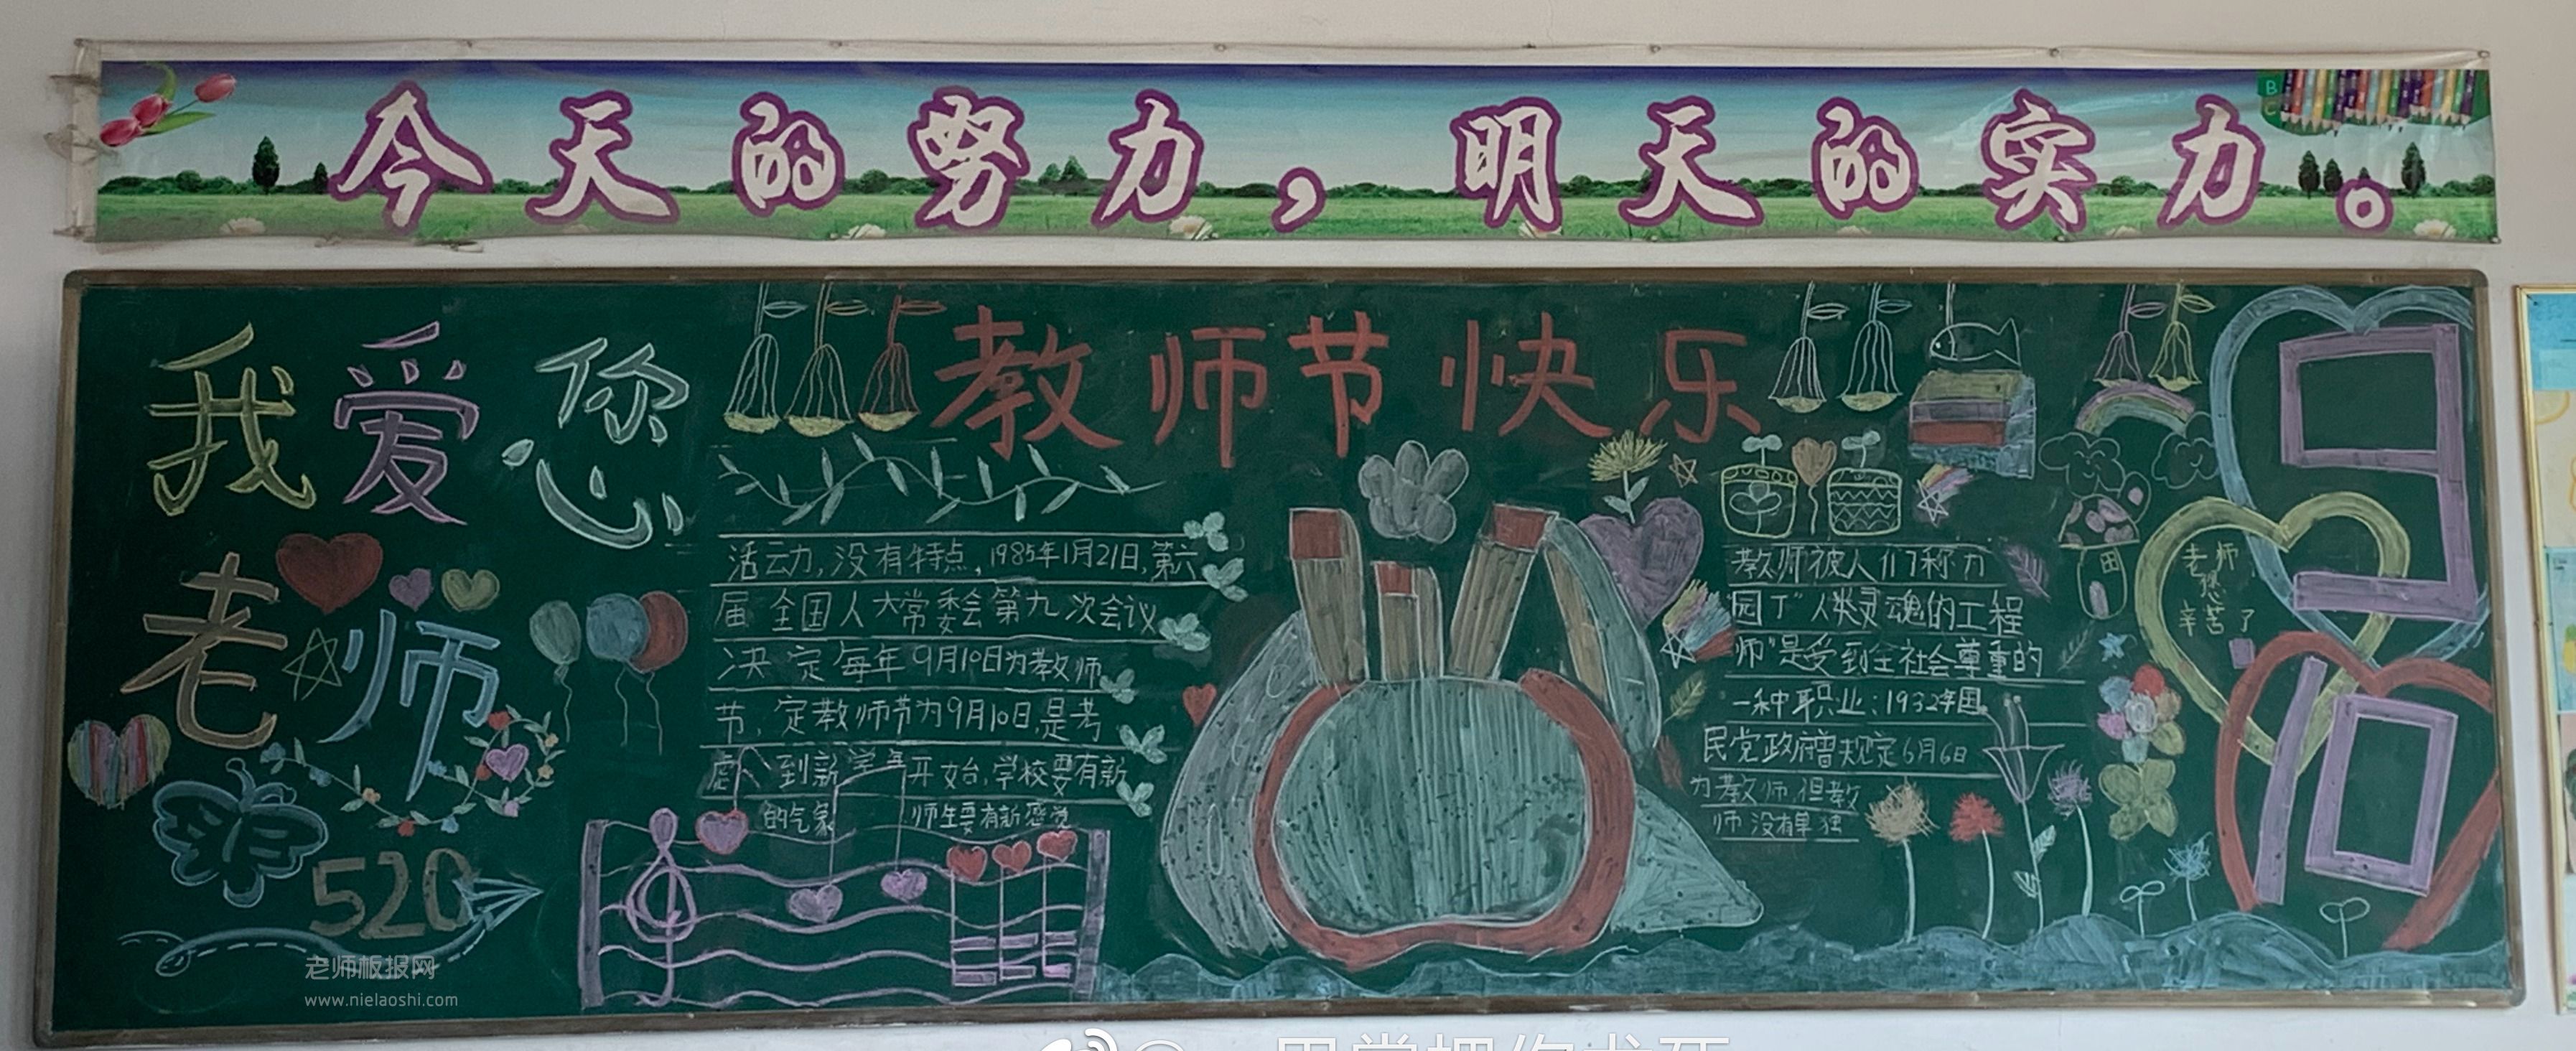 今天的努力，明天的实力。
我爱您
老师
520
教师节快乐
活动力,没有特点,1985年1月21日,第六
届全国人大常委会第九次会议
决定每年9月10日为教师
节,定教师节为9月10日,是考
虑到新学年开始,学校要有新
的气象 师生要有新感觉
教师被人们称为
园丁"人类灵魂的工程
师"是受到全社会尊重的
一种职业:1932年国
民党政府曾规定6月6日
为教师,但教
师没有单独
老师
您
辛苦了
9
10
老师板报网
www.nielaoshi.com